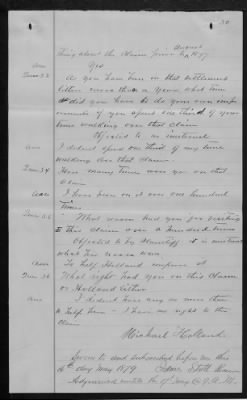 30
thing about the Claim from August
1877
Ans Yes
Ques 33 As you have been in that settlement
either more than a year what time
did you have to do your own
you spend one third of your
time walking over that claim
Objected to as immaterial
Ans I did not spend one third of my time
walking over that claim
Ques 34 How many times were you on that
claim
Ans I have been on it over one hundred
times
Ques 35 What reason had you for visiting
this claim over a hundred times
Objected to by it is immaterial
what his reason was
Ans To help Holland improve it
Ques 36 What right had you on this Claim
or Holland either
Ans I did not have any no more than
to help him - I have no right to the
claim
Michael Holland
Sworn to and subscribed before me this
16th day May 1879 Isaac Stott
Adjourned until May 9 A.M.